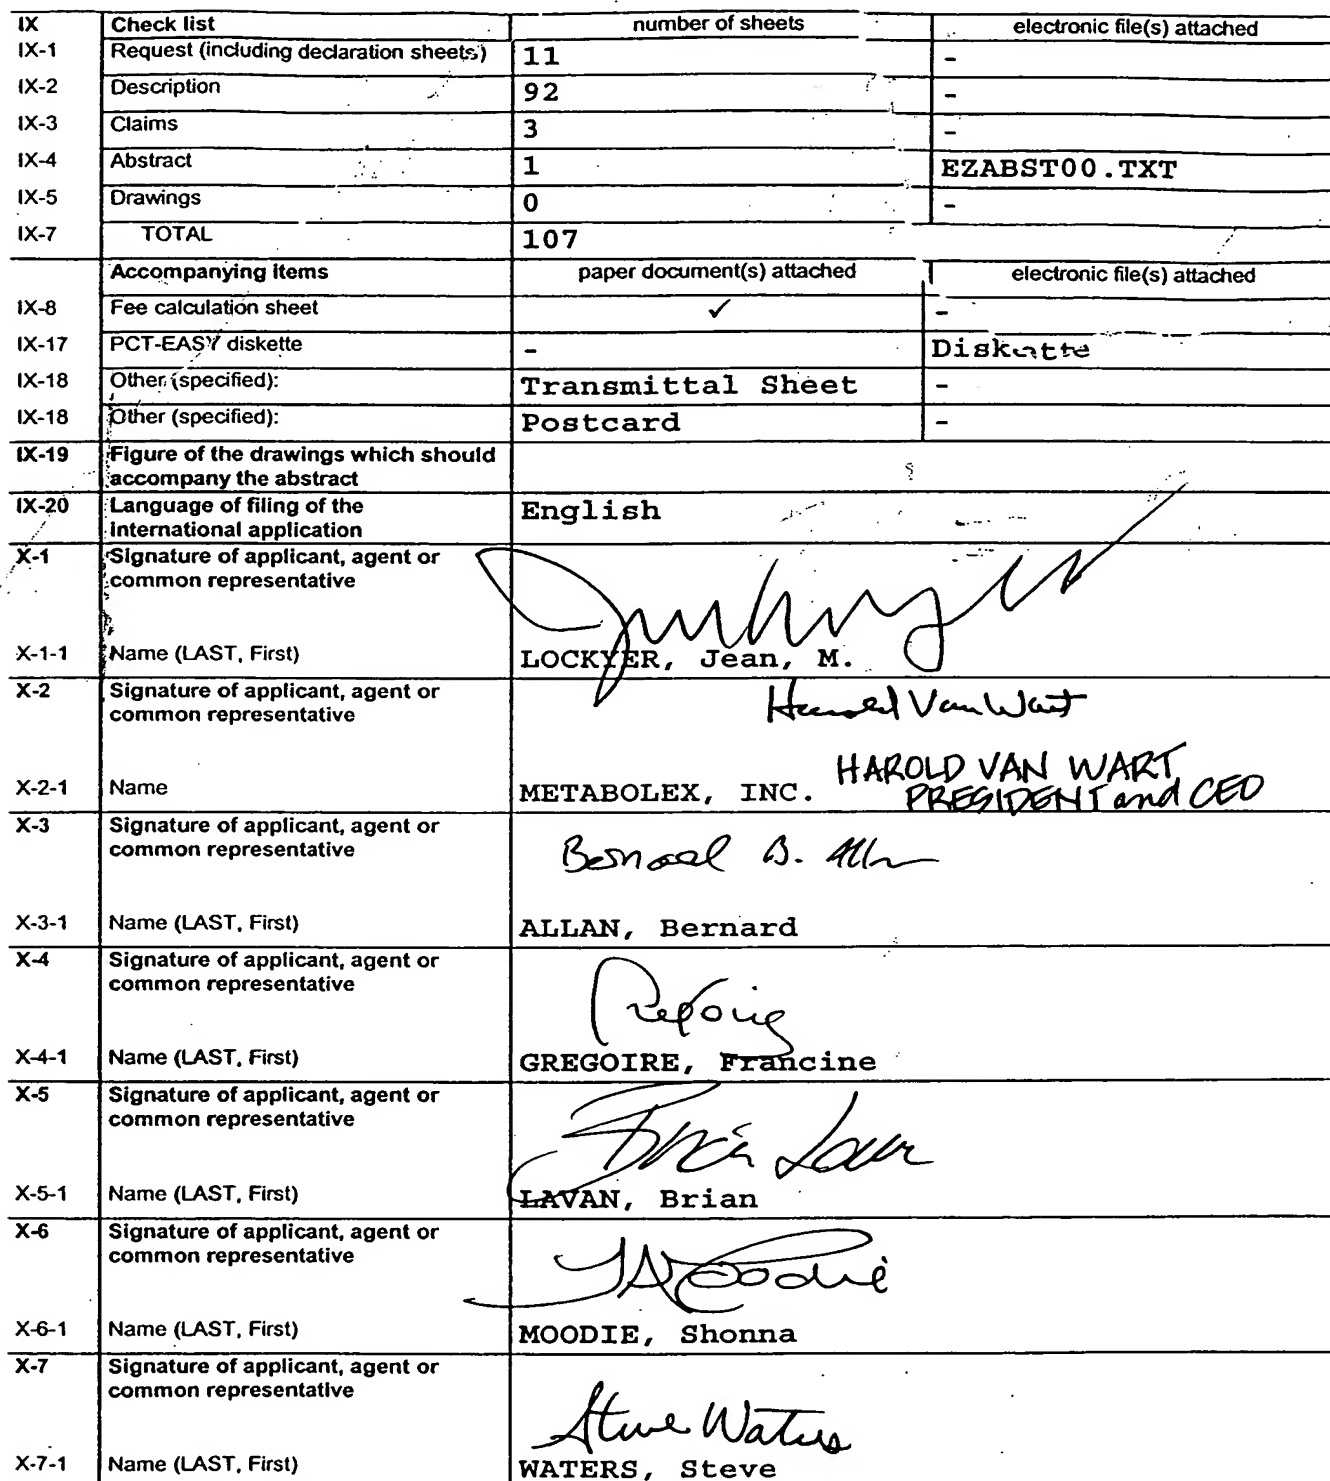 IX Check list number of sheets electronic file(s) attached
IX-1 Request (including declaration sheets) 11 -
IX-2 Description 92 -
IX-3 Claims 3 -
IX-4 Abstract 1 EZABST00.TXT
IX-5 Drawings 0 -
IX-7 TOTAL 107
Accompanying items paper document(s) attached electronic file(s) attached
IX-8 Fee calculation sheet ✓ -
IX-17 PCT-EASY diskette - Diskette
IX-18 Other (specified): Transmittal Sheet -
IX-18 Other (specified): Postcard -
IX-19 Figure of the drawings which should
accompany the abstract
IX-20 Language of filing of the English
international application
X-1 Signature of applicant, agent or
common representative
X-1-1 Name (LAST, First) LOCKYER, Jean, M.
X-2 Signature of applicant, agent or Harold Van Wart
common representative
HAROLD VAN WART
X-2-1 Name METABOLEX, INC. PRESIDENT and CEO
X-3 Signature of applicant, agent or
common representative Bernard B. Allan
X-3-1 Name (LAST, First) ALLAN, Bernard
X-4 Signature of applicant, agent or
common representative
X-4-1 Name (LAST, First) GREGOIRE, Francine
X-5 Signature of applicant, agent or
common representative
Brian Lavan
X-5-1 Name (LAST, First) LAVAN, Brian
X-6 Signature of applicant, agent or
common representative
Moodie
X-6-1 Name (LAST, First) MOODIE, Shonna
X-7 Signature of applicant, agent or
common representative
Steve Waters
X-7-1 Name (LAST, First) WATERS, Steve